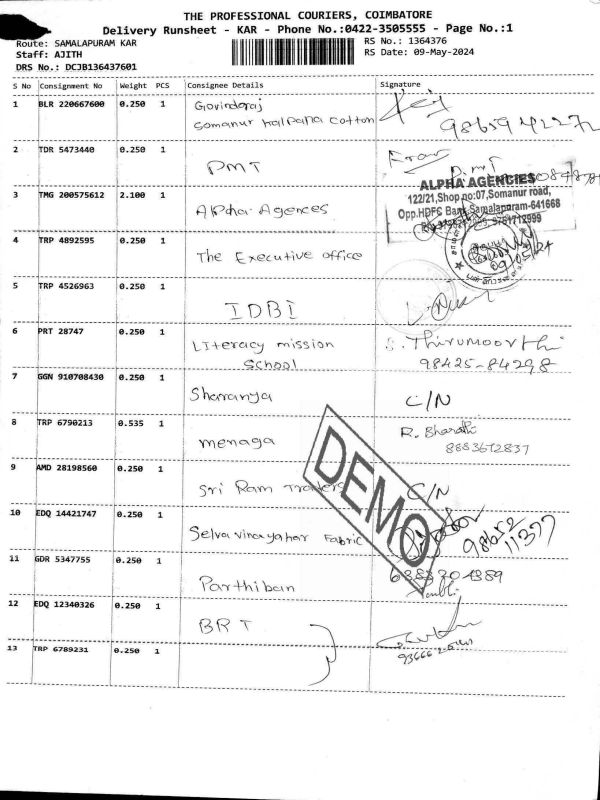 THE PROFESSIONAL COURIERS, COIMBATORE
Delivery Runsheet - KAR - Phone No.:0422-3505555 - Page No.:1
Route: SAMALAPURAM KAR
RS No.: 1364376
Staff: AJITH
RS Date: 09-May-2024
DRS No.: DCJB136437601
S No Consignment No Weight PCS Consignee Details Signature
1 BLR 220667600 0.250 1 Govindaraj
Somanur Kalpana Cotton
2 TDR 5473440 0.250 1 PMT
3 TMG 200575612 2.100 1 Alpha Agences
ALPHA AGENCIES
122/21, Shop no:07, Somanur road,
Opp.HDFC Bank, Samalapuram-641668
4 TRP 4892595 0.250 1 The Executive office
09/05/24
5 TRP 4526963 0.250 1 IDBI
6 PRT 28747 0.250 1 Literacy mission S. Thirumoorthi
School 98425-84298
7 GGN 910708430 0.250 1 Sharranya C/N
8 TRP 6790213 0.535 1 menaga R. Bharathi
8883672837
9 AMD 28198560 0.250 1 Sri Ram Traders C/N
DEMO
10 EDQ 14421747 0.250 1 Selvavinayahar Fabric
11 GDR 5347755 0.250 1 Parthiban
12 EDQ 12340326 0.250 1 BRT
13 TRP 6789231 0.250 1